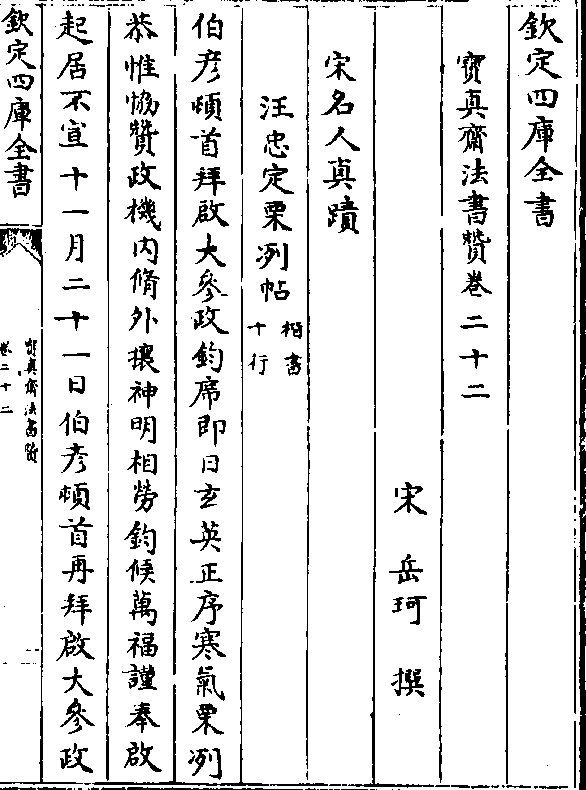 欽定四庫全書
寳真齋法書贊卷二十二
宋 岳珂 撰
宋名人真蹟
汪忠定栗冽帖
楷書
十行
伯彦頓首拜啟大參政鈞席即日玄英正序寒氣栗冽
恭惟恊贊政機内脩外攘神明相勞鈞候萬福謹奉啟
起居不宣十一月二十一日伯彦頓首再拜啟大參政
欽定四庫全書
寳真齋法書贊
卷二十二